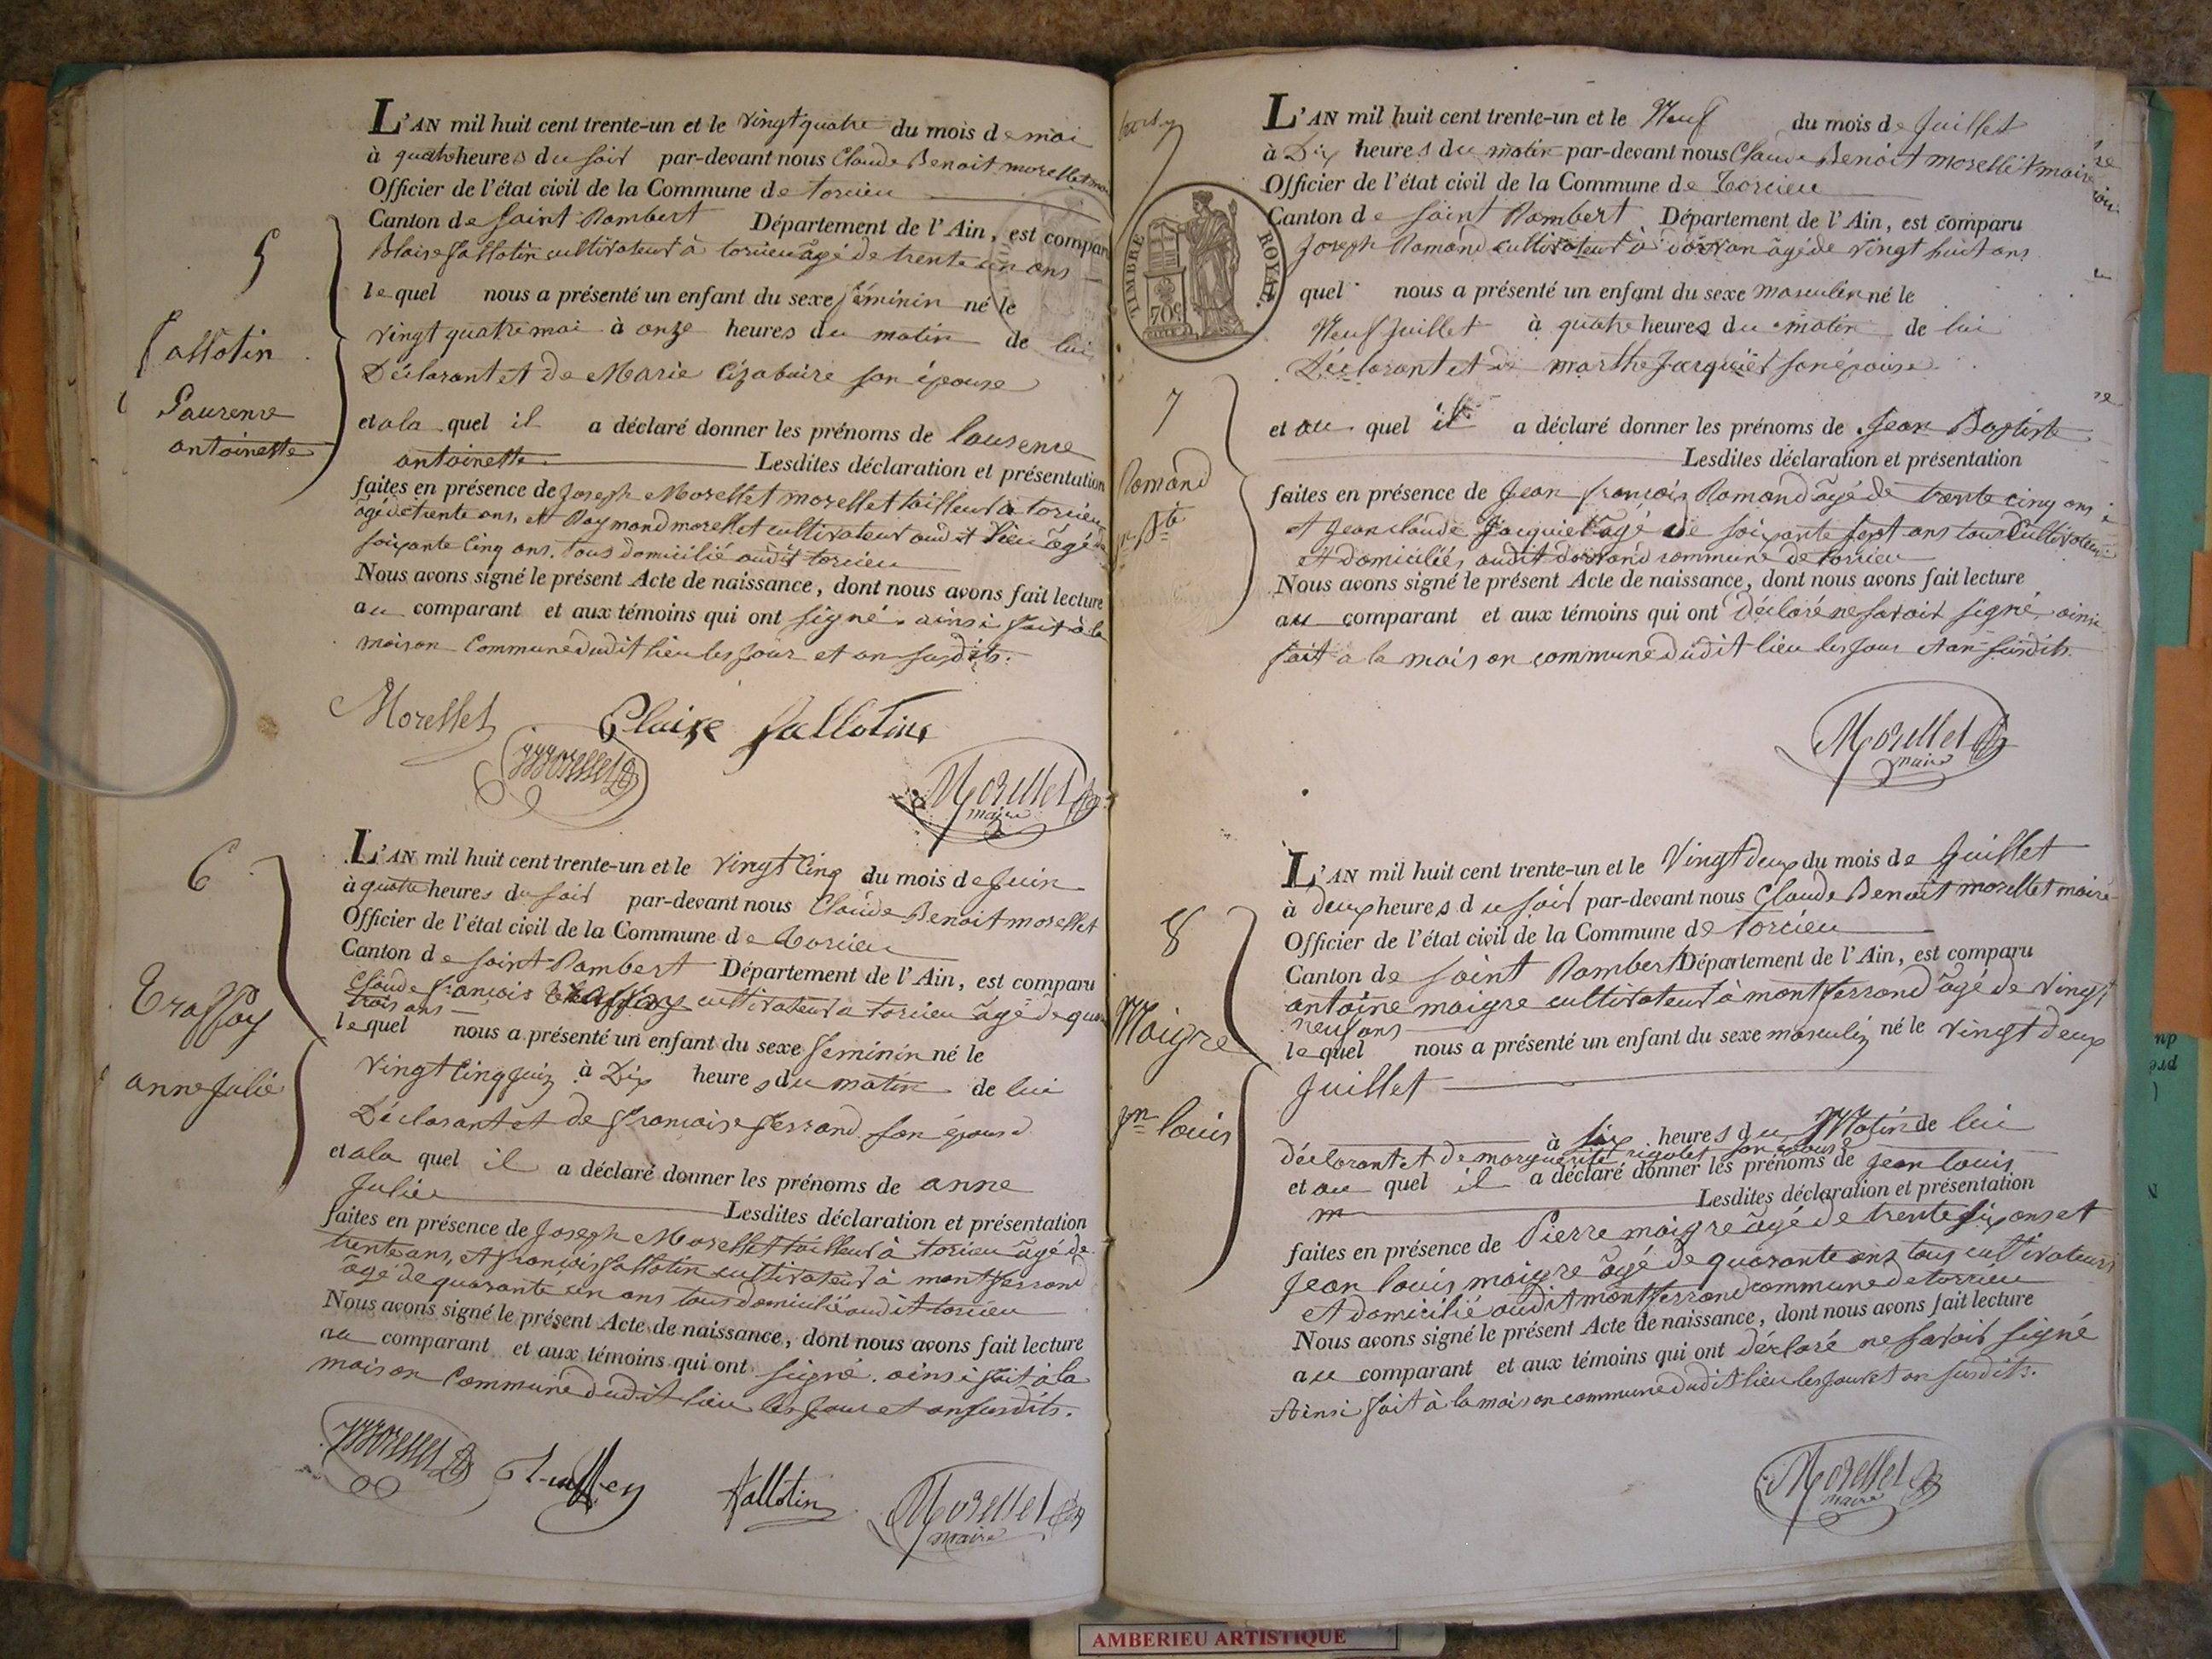 5
Sallotin
Laurence
antoinette
L'AN mil huit cent trente-un et le vingt quatre du mois de mai
à quatre heures du soir par-devant nous Claude Benoit morellet
Officier de l'état civil de la Commune de torcieu
Canton de saint Rambert Département de l'Ain, est comparu
Blaise Sallotin cultivateur à torcieu âgé de trente un ans
lequel nous a présenté un enfant du sexe féminin né le
vingt quatre mai à onze heures du matin de lui
Déclarant et de Marie son épouse
et a la quel il a déclaré donner les prénoms de laurence
antoinette Lesdites déclaration et présentation
faites en présence de Joseph Morellet morellet tailleur à torcieu
âgé de trente ans, et Raymond morellet cultivateur audit lieu âgé de
soixante cinq ans. tous domicilié audit torcieu
Nous avons signé le présent Acte de naissance, dont nous avons fait lecture
au comparant et aux témoins qui ont signé. ainsi fait à la
maison Commune dudit lieu les jour et an susdits.
Morellet Blaise Sallotin
Morellet
Morellet
maire
6
Traffay
anne Julie
L'AN mil huit cent trente-un et le vingt Cinq du mois de Juin
à quatre heures du soir par-devant nous Claude Benoit morellet
Officier de l'état civil de la Commune de torcieu
Canton de saint Rambert Département de l'Ain, est comparu
Claude françois traffay cultivateur a torcieu âgé de
trois ans
lequel nous a présenté un enfant du sexe feminin né le
vingt Cinq Juin à Dix heures du matin de lui
Déclarant et de françoise ferrand son épouse
et a la quel il a déclaré donner les prénoms de anne
Julie Lesdites déclaration et présentation
faites en présence de Joseph Morellet tailleur à torcieu âgé de
trente ans, et françois sallotin cultivateur à montferrand
âgé de quarante un ans tous domicilié audit torcieu
Nous avons signé le présent Acte de naissance, dont nous avons fait lecture
au comparant et aux témoins qui ont signé. ainsi fait à la
maison Commune dudit lieu les Jour et an susdits.
Morellet Traffey Sallotin Morellet
maire
TIMBRE ROYAL
70c
7
Romand
Jn Bte
L'AN mil huit cent trente-un et le Neuf du mois de Juillet
à Dix heures du matin par-devant nous Claude Benoit morellet maire
Officier de l'état civil de la Commune de torcieu
Canton de saint Rambert Département de l'Ain, est comparu
Joseph Romand cultivateur à dorvan âgé de vingt huit ans
quel nous a présenté un enfant du sexe masculin né le
Neuf Juillet à quatre heures du matin de lui
Déclarant et de marthe Jacquiet son épouse
et au quel il a déclaré donner les prénoms de Jean Baptiste
Lesdites déclaration et présentation
faites en présence de Jean françois Romand âgé de trente cinq ans
et Jean claude Jacquiet âgé de soixante sept ans tous Cultivateurs
et domiciliés audit dorvand commune de torcieu
Nous avons signé le présent Acte de naissance, dont nous avons fait lecture
au comparant et aux témoins qui ont déclaré ne savoir signé, ainsi
fait a la maison commune dudit lieu les jour et an susdits.
Morellet
maire
8
Maigre
Jn louis
L'AN mil huit cent trente-un et le Vingt deux du mois de Juillet
à deux heures du soir par-devant nous Claude Benoit morellet maire
Officier de l'état civil de la Commune de torcieu
Canton de saint Rambert Département de l'Ain, est comparu
antoine maigre cultivateur à montferrand âgé de vingt
neuf ans
lequel nous a présenté un enfant du sexe masculin né le vingt deux
Juillet
à six heures du Matin de lui
déclarant et de marguerite rigolet son épouse
et au quel il a déclaré donner les prénoms de Jean louis
Lesdites déclaration et présentation
faites en présence de Pierre maigre âgé de trente six ans et
Jean louis maigre âgé de quarante ans tous cultivateurs
et domicilié audit montferrand commune de torcieu
Nous avons signé le présent Acte de naissance, dont nous avons fait lecture
au comparant et aux témoins qui ont déclaré ne savoir signé
Ainsi fait à la maison commune dudit lieu les jour et an susdits.
Morellet
maire
AMBERIEU ARTISTIQUE